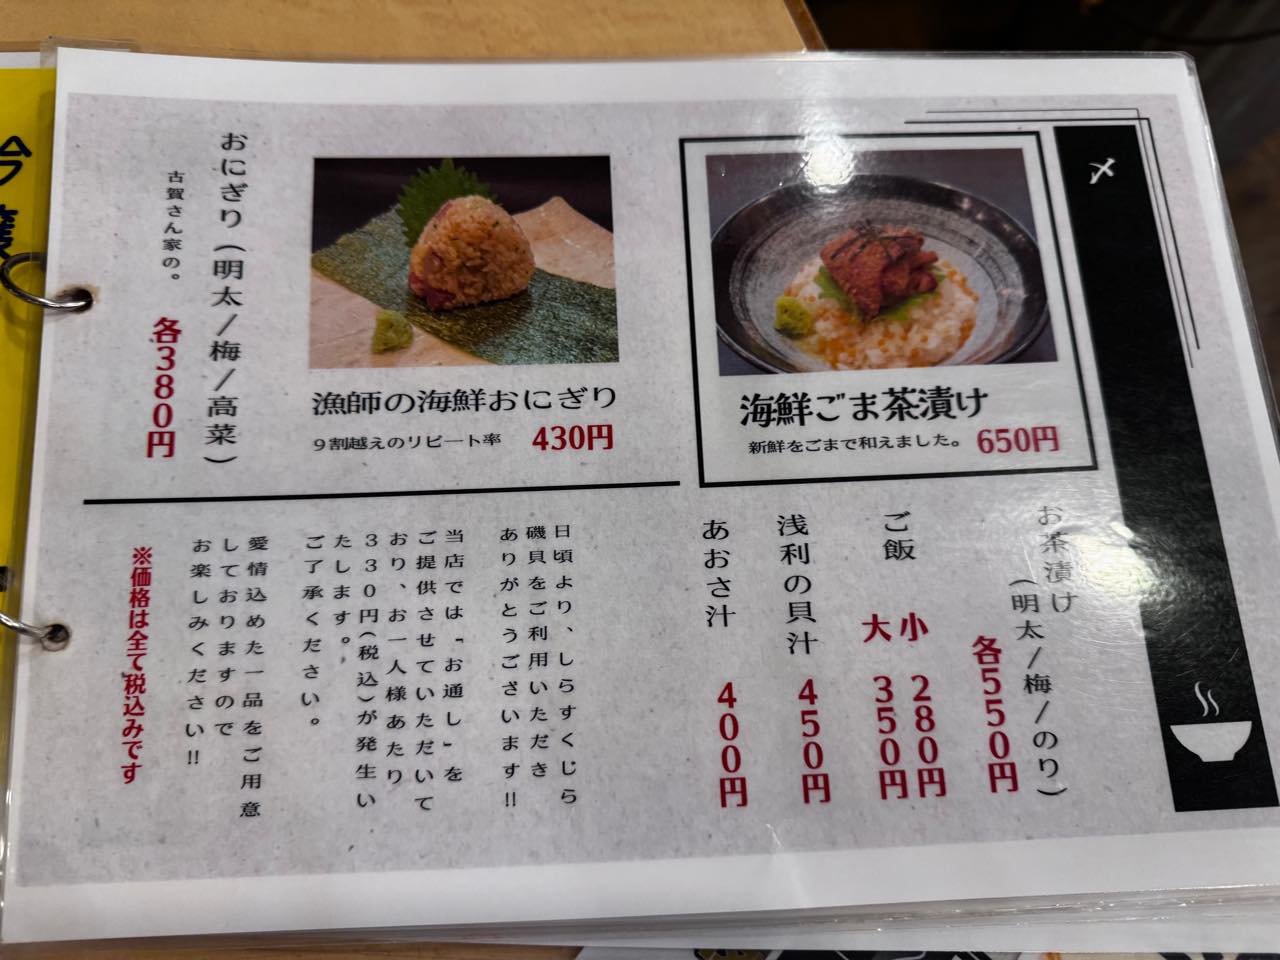 〆
海鮮ごま茶漬け
新鮮をごまで和えました。 650円
漁師の海鮮おにぎり
9割越えのリピート率 430円
おにぎり(明太/梅/高菜)
古賀さん家の。 各380円
お茶漬け
(明太/梅/のり)
各550円
ご飯
小 280円
大 350円
浅利の貝汁 450円
あおさ汁 400円
日頃より、しらすくじら
磯貝をご利用いただき
ありがとうございます!!
当店では「お通し」を
ご提供させていただいて
おり、お一人様あたり
330円(税込)が発生い
たします。
ご了承ください。
愛情込めた一品をご用意
しておりますので
お楽しみください!!
※価格は全て税込みです